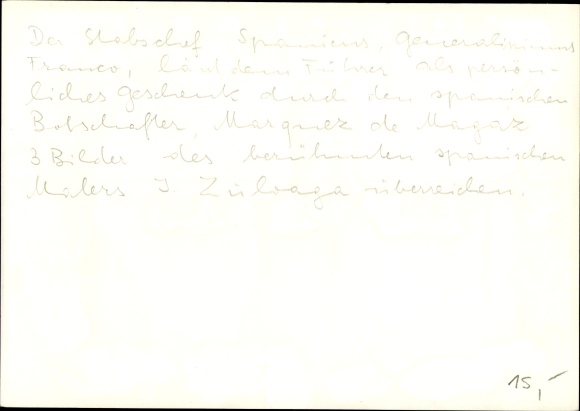 Der Stabschef Spaniens, Generalissimus
Franco, läßt dem Führer als persön-
liches Geschenk durch den spanischen
Botschafter, Marquez de Magaz
3 Bilder des berühmten spanischen
Malers I. Zuloaga überreichen.
15,-